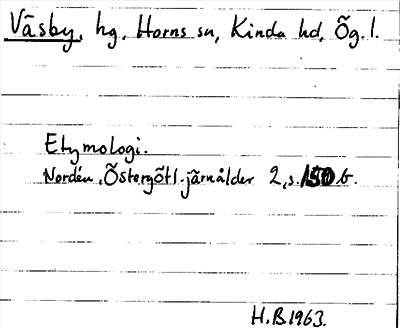 Väsby, hg, Horns sn, Kinda hd, Ög. l.
Etymologi.
Nordén, Östergötl. järnålder 2, s. 150 f.
H.B 1963.